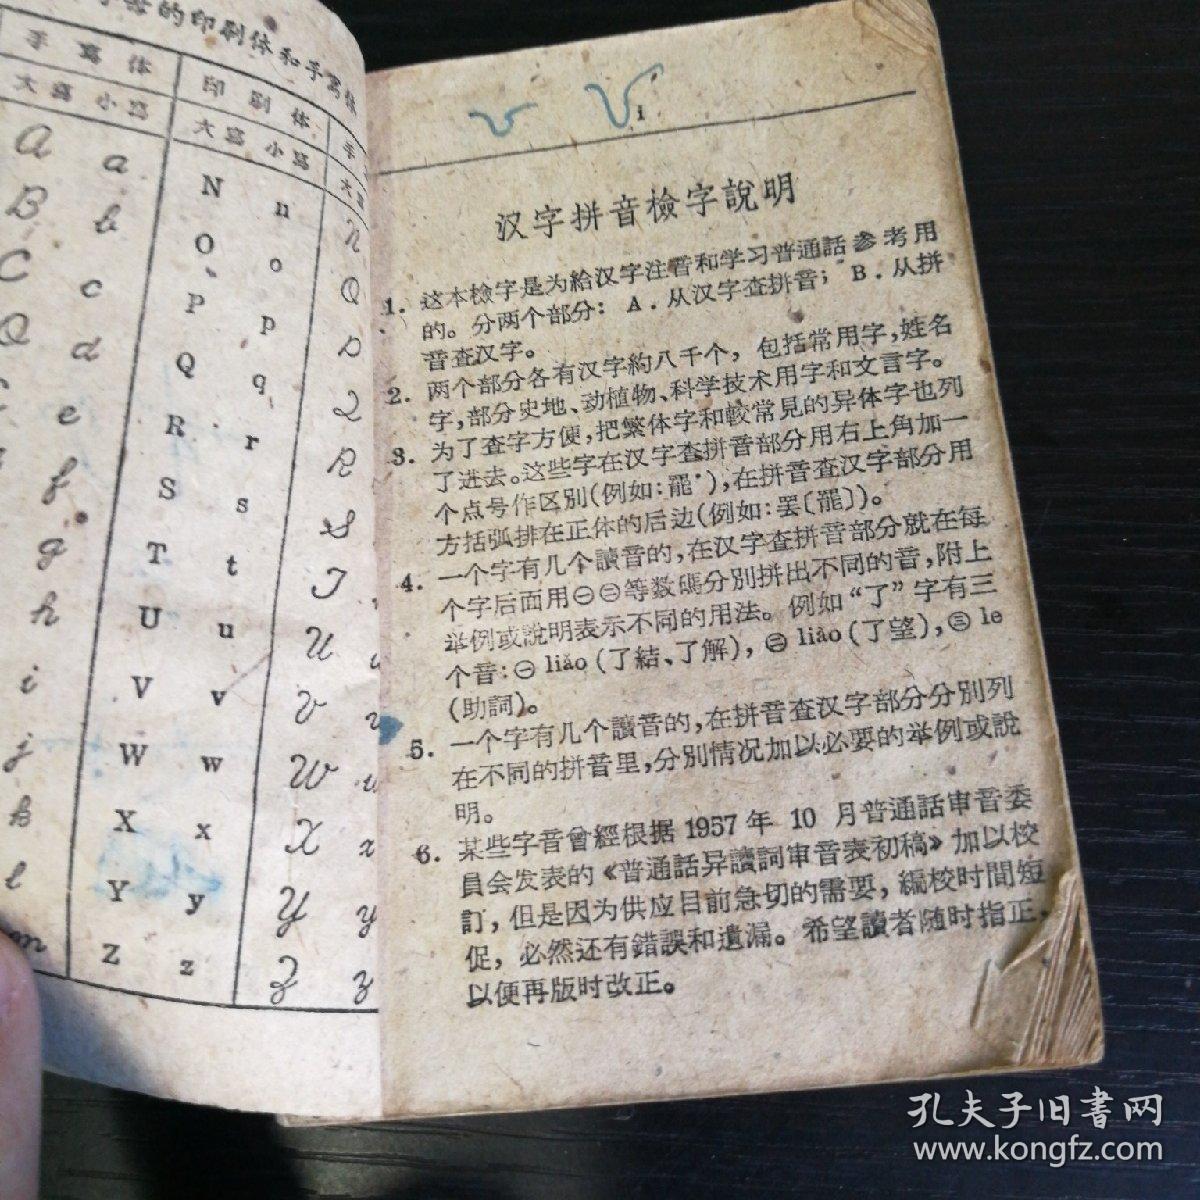 母的印刷体和手寫体
手寫体 印刷体 手
大寫 小寫 大寫 小寫 大寫
A a N n N
B b O o O
C c P p P
D d Q q Q
e R r R
f S s S
g T t T
h U u U
i V v V v
j W w W w
k X x X x
l Y y Y y
m Z z Z z
1
汉字拼音檢字說明
1. 这本檢字是为給汉字注音和学习普通話参考用
的。分两个部分: A. 从汉字查拼音; B. 从拼
音查汉字。
2. 两个部分各有汉字約八千个, 包括常用字,姓名
字,部分史地、动植物、科学技术用字和文言字。
3. 为了查字方便,把繁体字和較常見的异体字也列
了进去。这些字在汉字查拼音部分用右上角加一
个点号作区別(例如:罷˙),在拼音查汉字部分用
方括弧排在正体的后边(例如:罢〔罷〕)。
4. 一个字有几个讀音的,在汉字查拼音部分就在每
个字后面用㊀㊁等数碼分別拼出不同的音,附上
举例或說明表示不同的用法。例如“了”字有三
个音:㊀ liǎo (了結、了解), ㊁ liào (了望), ㊂ le
(助詞)。
5. 一个字有几个讀音的,在拼音查汉字部分分別列
在不同的拼音里,分別情况加以必要的举例或說
明。
6. 某些字音曾經根据 1957 年 10 月普通話审音委
員会发表的《普通話异讀詞审音表初稿》加以校
訂, 但是因为供应目前急切的需要, 編校时間短
促, 必然还有錯誤和遺漏。希望讀者随时指正,
以便再版时改正。
孔夫子旧書网
www.kongfz.com